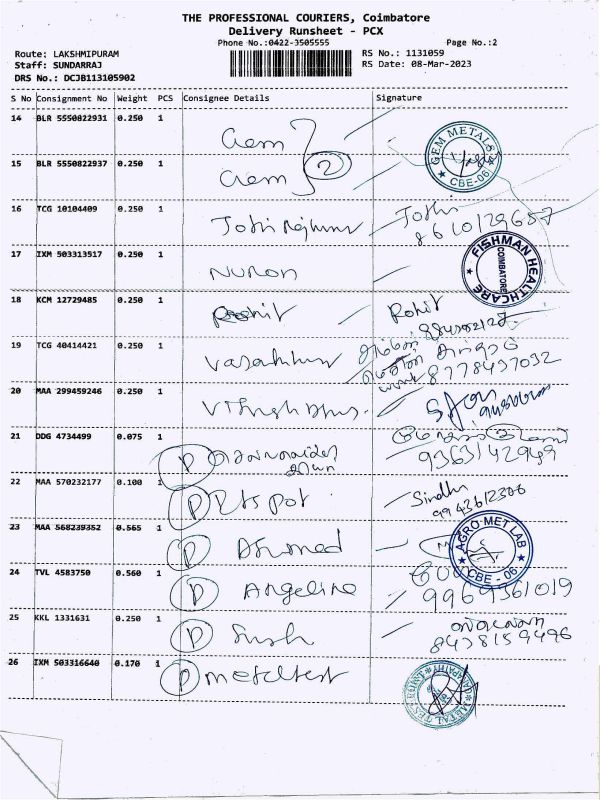 THE PROFESSIONAL COURIERS, Coimbatore
Delivery Runsheet - PCX
Phone No.:0422-3505555
Page No.:2
Route: LAKSHMIPURAM
RS No.: 1131059
Staff: SUNDARRAJ
RS Date: 08-Mar-2023
DRS No.: DCJB113105902
S No Consignment No Weight PCS Consignee Details Signature
14 BLR 5550822931 0.250 1 Gem
15 BLR 5550822937 0.250 1 Gem 2
GEM METALS CBE-06
16 TCG 10104409 0.250 1 Jothi Rajkumar Jothi
8610129657
17 IXM 503313517 0.250 1 Nuron
FISHMAN HEALTHCARE COIMBATORE
18 KCM 12729485 0.250 1 Rohit Rohit
19 TCG 40414421 0.250 1
8778457032
20 MAA 299459246 0.250 1
21 DDG 4734499 0.075 1 P
9363142949
22 MAA 570232177 0.100 1 P pot Sindhu
9943612306
23 MAA 568239352 0.565 1 P Ahmed
AGRO MET LAB CBE - 06
24 TVL 4583750 0.560 1 P Angeline
9969361019
25 KKL 1331631 0.250 1 P
8438159496
26 IXM 503316640 0.170 1 P metaltest